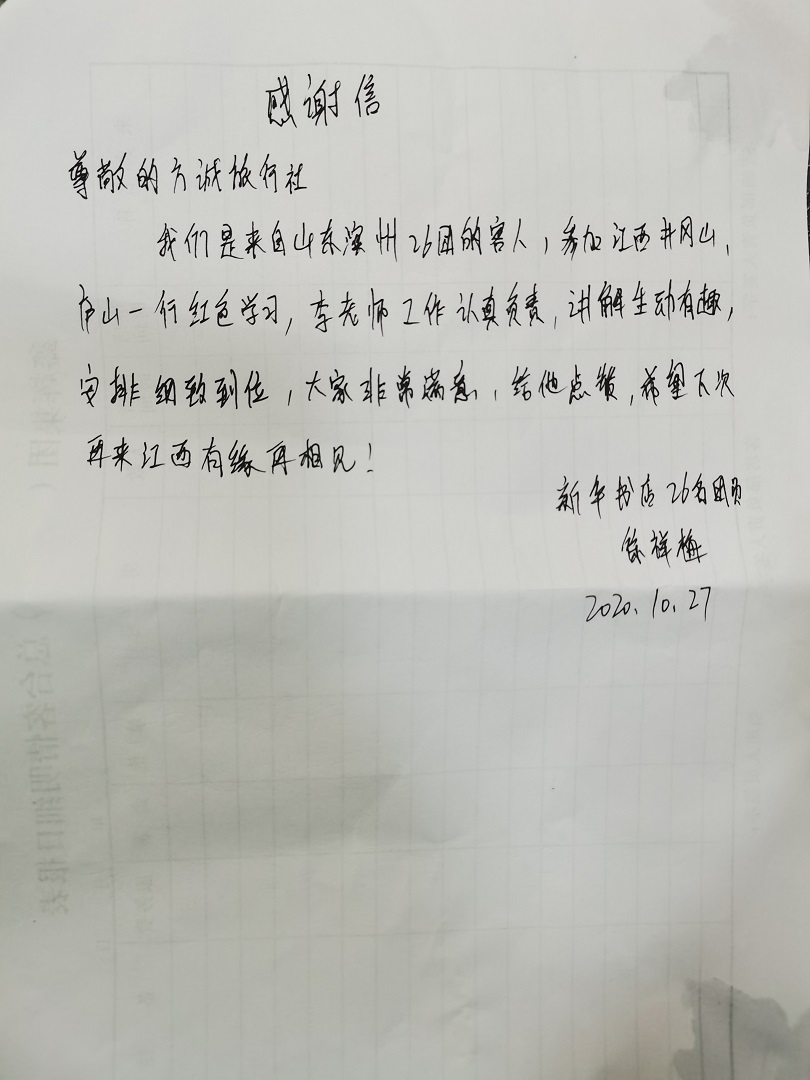 感谢信
尊敬的方诚旅行社
我们是来自山东滨州26团的客人，参加江西井冈山、
庐山一行红色学习，李老师工作认真负责，讲解生动有趣，
安排细致到位，大家非常满意，给他点赞，希望下次
再来江西有缘再相见！
新华书店26名团员
徐祥梅
2020.10.27